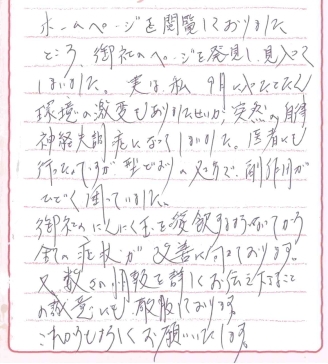 ホームページを閲覧しておりました
ところ、御社のページを発見し見入って
しまいました。実は私9月に入ってたん
環境の激変もありましたせいか突然の自律
神経失調症になってしまいました。医者にも
行ったのですが型どおりの処方で、副作用が
ひどく困っていました。
御社のにんにく玉を服飲するようになってから
全ての症状が改善に向ております。
又、数々の情報を詳しくお伝え下さること
の誠意にも敬服しております。
これからもよろしくお願いいたします。